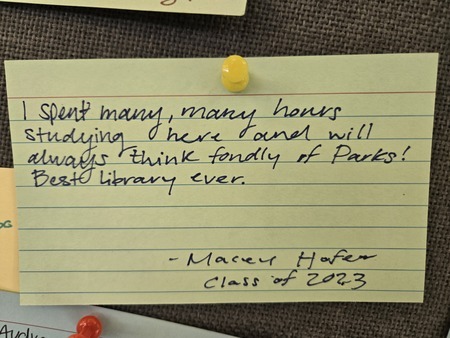 I spent many, many hours
studying here and will
always think fondly of Parks!
Best Library ever.
- Macey Hafer
Class of 2023